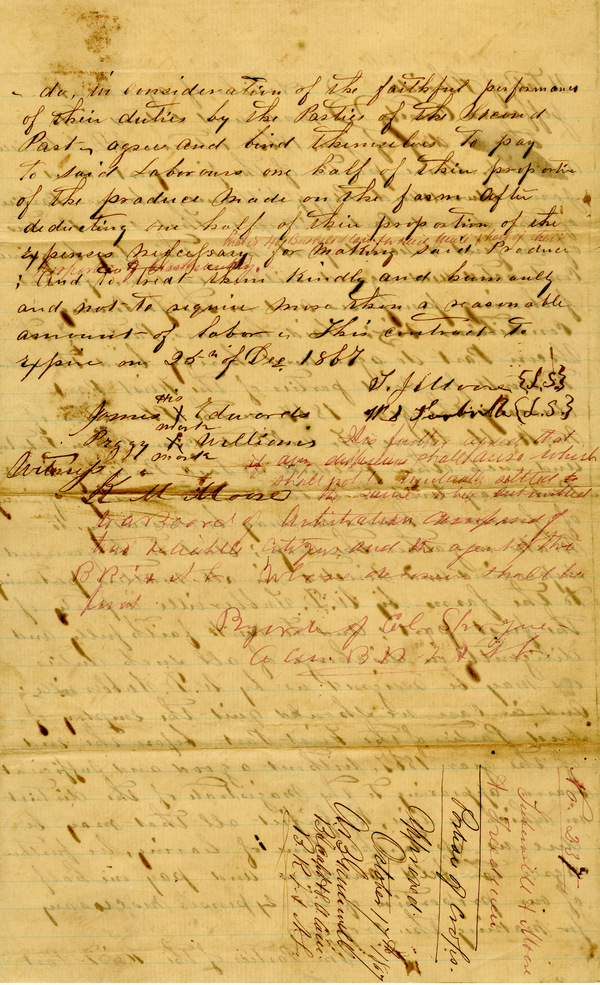 do, in consideration of the faithful performance
of their duties by the Parties of the Second
Part, agree and bind themselves to pay
to said Labourers one half of their proportion
of the produce made on the farm after
deducting one half of their proportion of the
expenses nefcessary for making said Produce
; and to treat them kindly and humanely
and not to require more than a reasonable
amount of labor. This contract to
expire on 25th of Dec 1867
T. J. Moore {L.S.}
James his X mark Edwards
{L.S.}
Peggy X mark Williams
Witness
H M Moore
It is further agreed that
if any shall arise which
shall not be settled
the same to be submitted
to a board of Arbitration composed of
two reliable citizens and the agent of the
B R F & A L Whose decision shall be
final
By order of Col
A Com B R F & A L
No.
& Moore
&
Freedmen
Portion of Crops.
Approved.
October 17th /67
B R F & A L